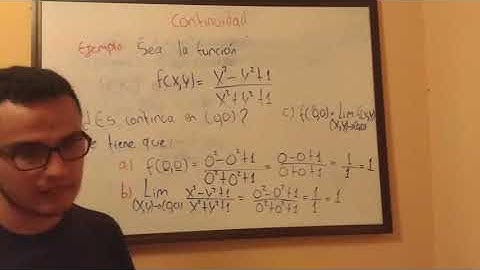 Continuidad
Ejemplo: Sea la función
f(x,y) = x²-y²+1 / x²+y²+1
¿Es continua en (0,0)?
c) f(0,0) = Lim f(x,y) (x,y)→(0,0)
e tiene que:
a) f(0,0) = 0²-0²+1 / 0²+0²+1 = 0-0+1 / 0+0+1 = 1/1 = 1
b) Lim (x,y)→(0,0) x²-y²+1 / x²+y²+1 = 0²-0²+1 / 0²+0²+1 = 1/1 = 1